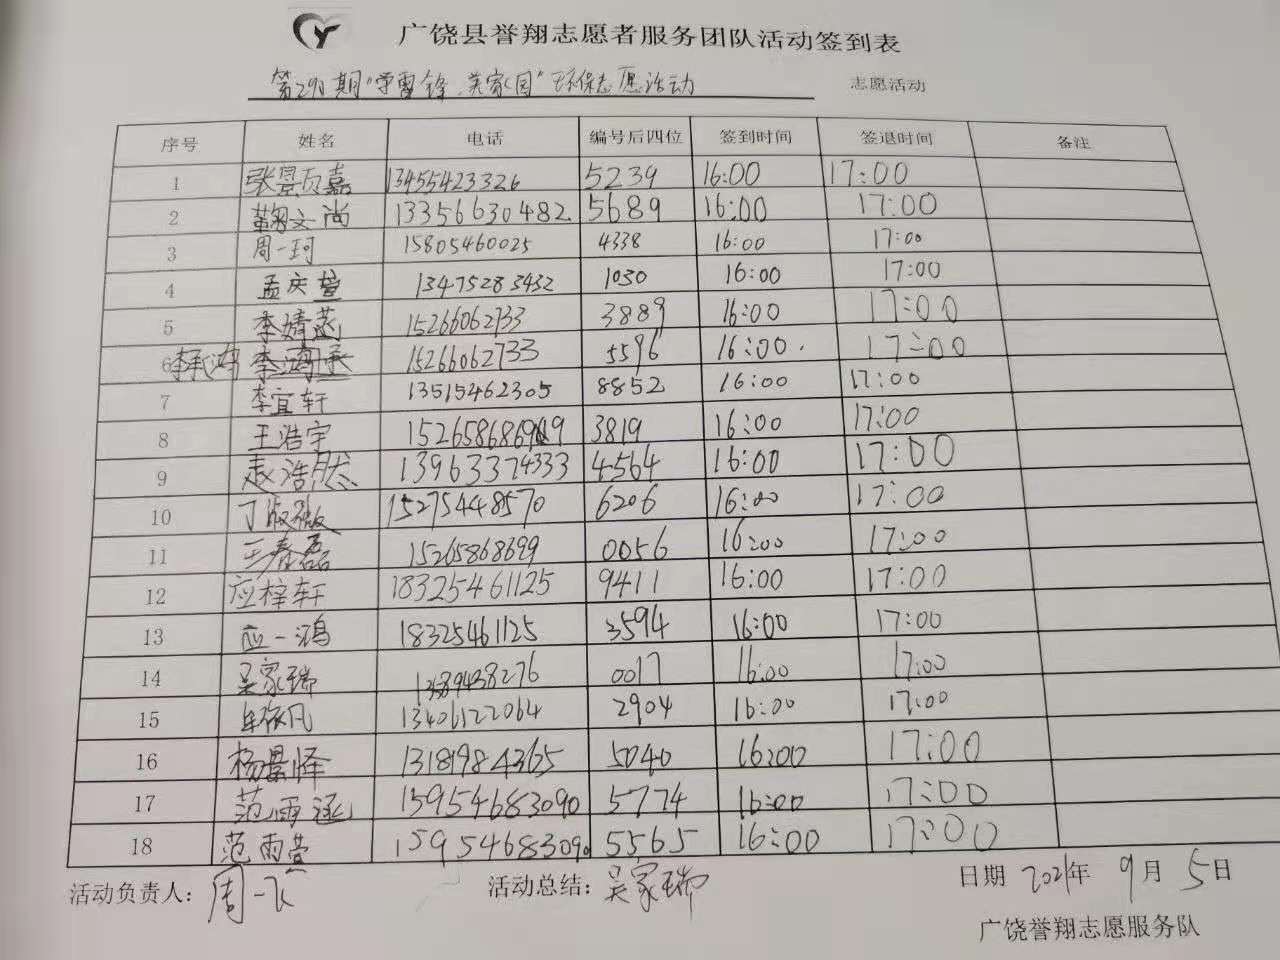 广饶县誉翔志愿者服务团队活动签到表
第29期“学雷锋、美家园”环保志愿活动 志愿活动
序号 姓名 电话 编号后四位 签到时间 签退时间 备注
1 张景页嘉 13455423326 5239 16:00 17:00
2 鞠文尚 13356630482 5689 16:00 17:00
3 周一珂 15805460025 4338 16:00 17:00
4 孟庆萱 13475283432 1030 16:00 17:00
5 李婧菡 15266062733 3889 16:00 17:00
6 李承鸿 15266062733 5596 16:00. 17:00
7 李宜轩 13515462305 8852 16:00 17:00
8 王浩宇 3819 16:00 17:00
9 赵浩然 13963374333 4564 16:00 17:00
10 丁 15275448570 6206 16:00 17:00
11 王春磊 15265868699 0056 16:00 17:00
12 应梓轩 18325461125 9411 16:00 17:00
13 应一鸿 18325461125 3594 16:00 17:00
14 吴家瑞 0017 16:00 17:00
15 牟依凡 13406122064 2904 16:00 17:00
16 杨景怿 13181984365 5040 16:00 17:00
17 范雨涵 15954683090 5774 16:00 17:00
18 范雨萱 15954683090 5565 16:00 17:00
活动负责人：周一飞 活动总结：吴家瑞 日期 2021年 9月 5日
广饶誉翔志愿服务队